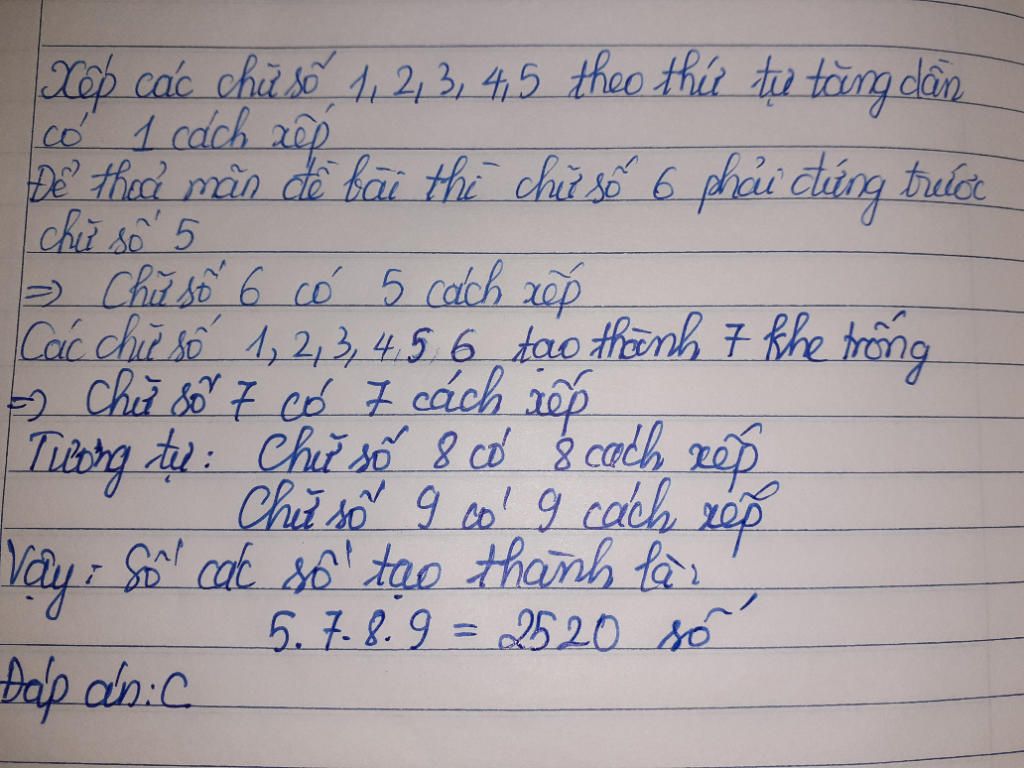 Xếp các chữ số 1, 2, 3, 4, 5 theo thứ tự tăng dần
có 1 cách xếp
Để thoả mãn đề bài thì chữ số 6 phải đứng trước
chữ số 5
=> Chữ số 6 có 5 cách xếp
Các chữ số 1, 2, 3, 4, 5, 6 tạo thành 7 khe trống
=> Chữ số 7 có 7 cách xếp
Tương tự: Chữ số 8 có 8 cách xếp
Chữ số 9 có 9 cách xếp
Vậy: Số các số tạo thành là:
5.7.8.9 = 2520 số
Đáp án: C